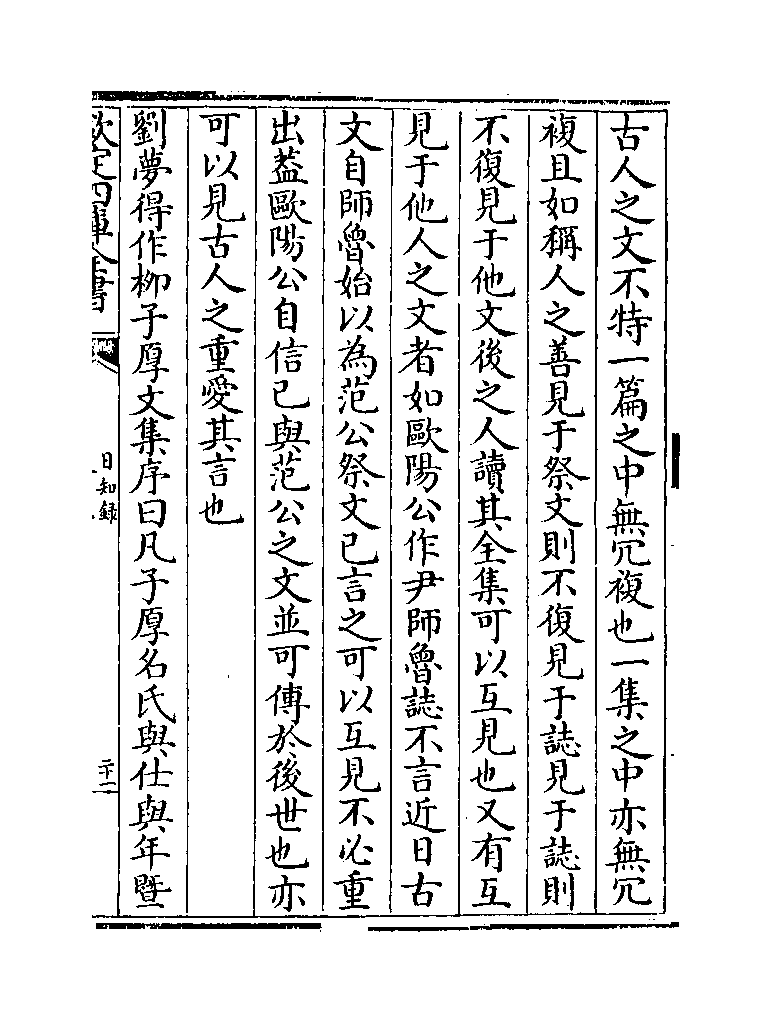 古人之文不特一篇之中無冗複也一集之中亦無冗
複且如稱人之善見于祭文則不復見于誌見于誌則
不復見于他文後之人讀其全集可以互見也又有互
見于他人之文者如歐陽公作尹師魯誌不言近日古
文自師魯始以為范公祭文已言之可以互見不必重
出葢歐陽公自信已與范公之文並可傳於後世也亦
可以見古人之重愛其言也
劉夢得作栁子厚文集序曰凡子厚名氏與仕與年曁
欽定四庫全書
日知錄
二十二